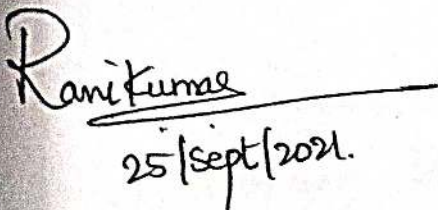 Rani Kumar
25/Sept/2021.